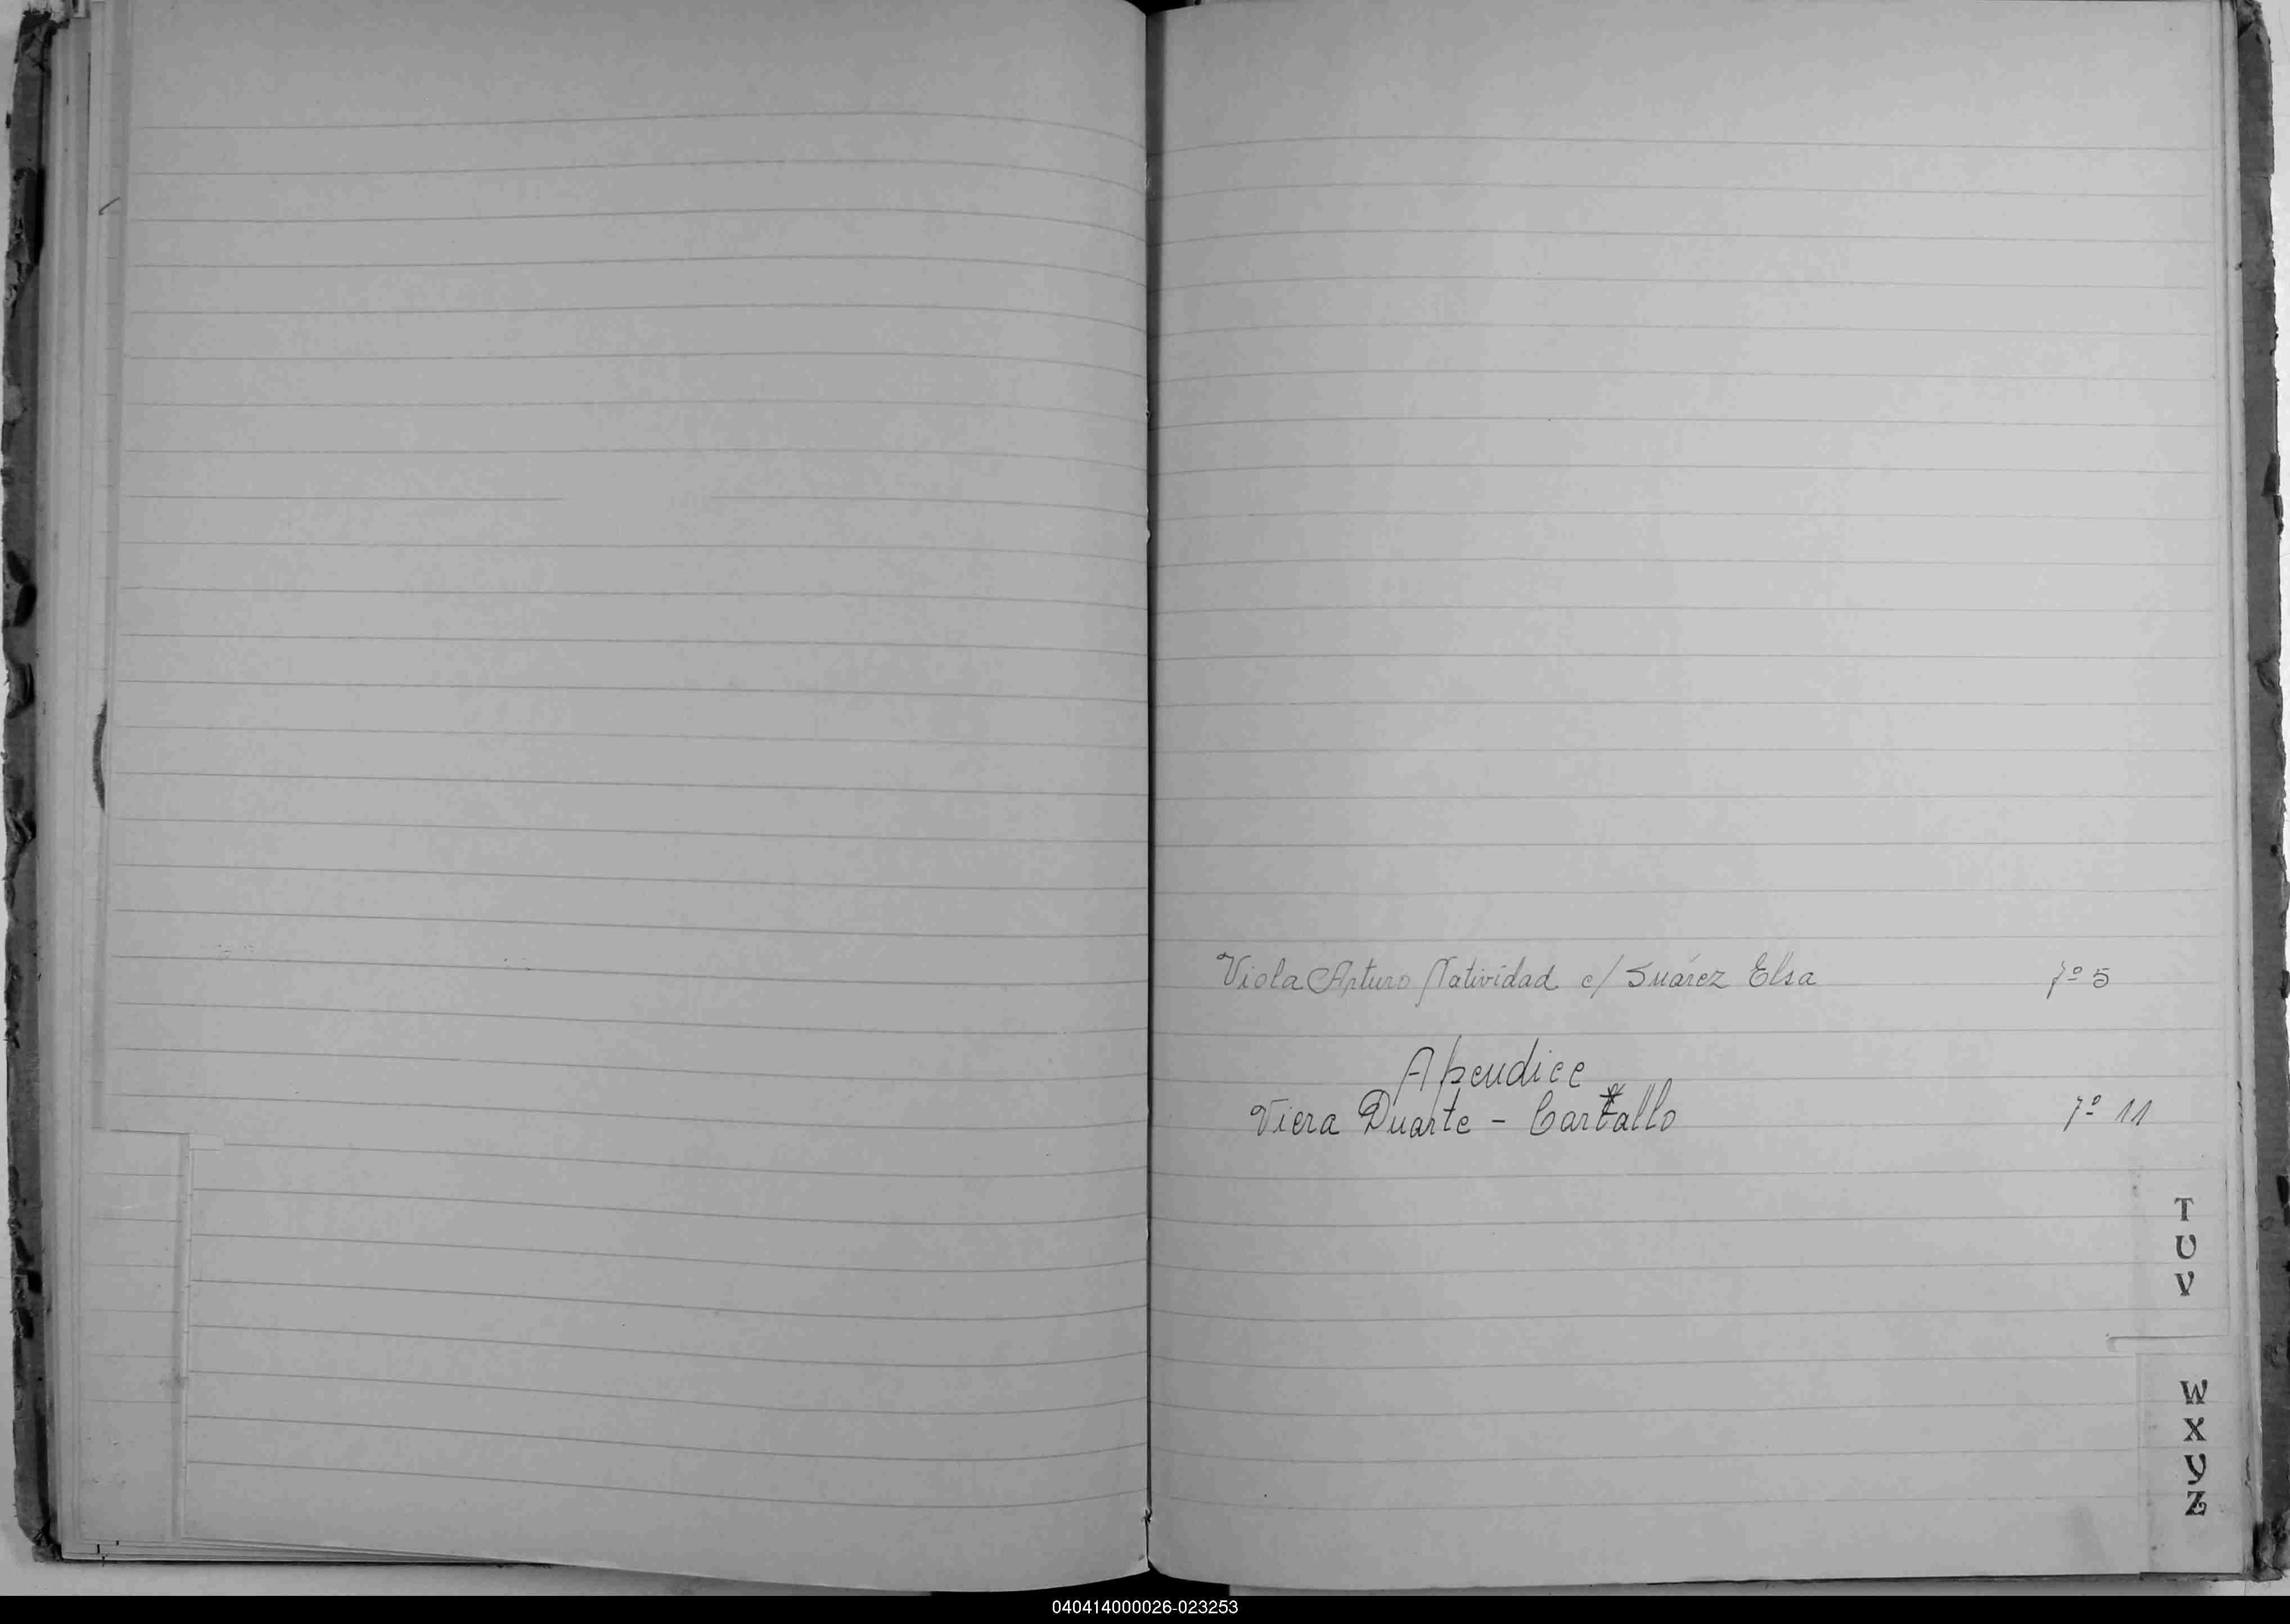 Viola Arturo Natividad c/ Suárez Elsa fº 5
Apendice
Viera Duarte - Cartallo fº 11
T
U
V
W
X
Y
Z
040414000026-023253